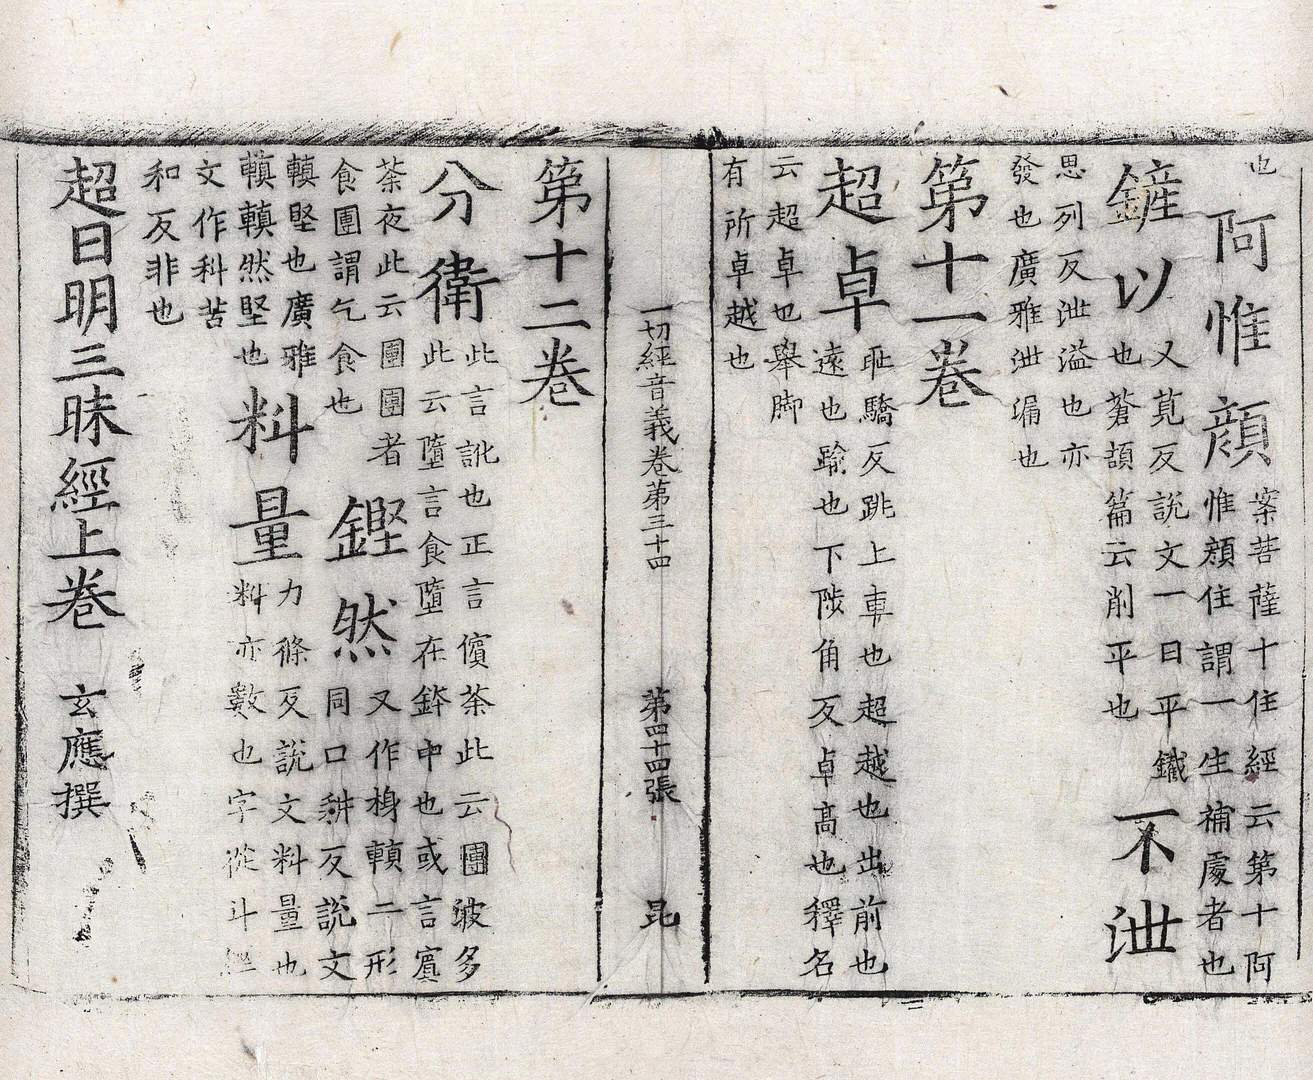 也
阿惟顔
案菩薩十住經云第十阿
惟顔住謂一生補處者也
鏟以
叉莧反說文一曰平鐵
也蒼頡篇云削平也
不泄
思列反泄溢也亦
發也廣雅泄漏也
第十一卷
超卓
耻驕反跳上車也超越也出前也
遠也踰也下陟角反卓高也釋名
云超卓也舉脚
有所卓越也
一切經音義卷第三十四 第四十四張 昆
第十二卷
分衛
此言訛也正言儐荼此云團波多
此云墮言食墮在鉢中也或言賓
荼夜此云團團者
食團謂乞食也
鏗然
又作䡩二形
同口耕反說文
䡩堅也廣雅
䡩䡩然堅也
料量
力條反說文料量也
料亦數也字從斗經
文作科苦
和反非也
超日明三昧經上卷 玄應撰